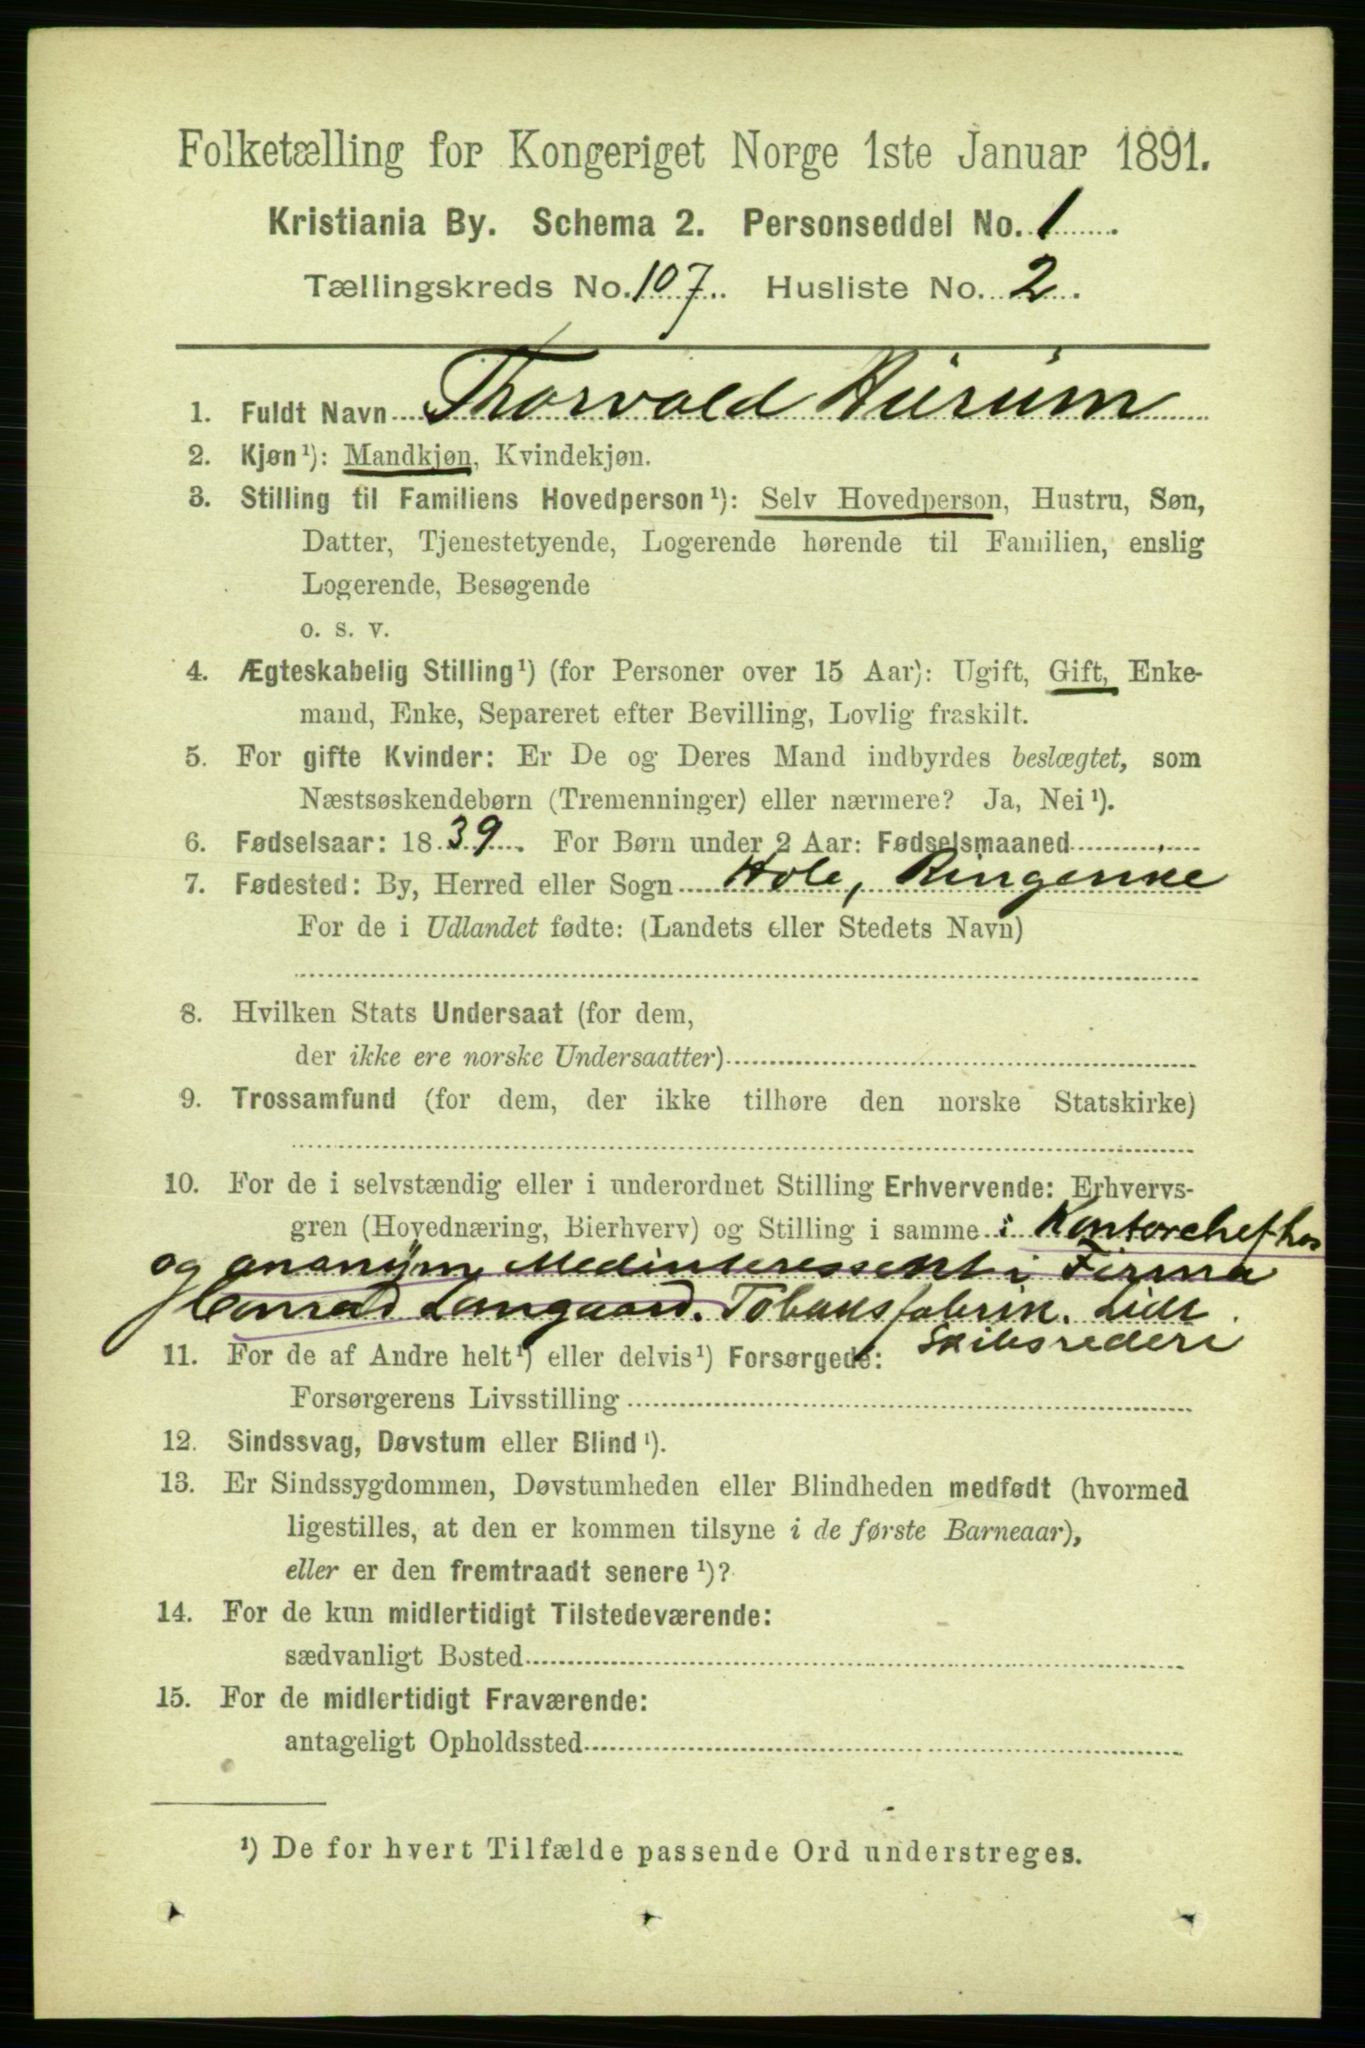 Folketælling for Kongeriget Norge 1ste Januar 1891.
Kristiania By. Schema 2. Personseddel No. 1
Tællingskreds No. 107. Husliste No. 2.
1. Fuldt Navn Thorvald Hurum
2. Kjøn¹): Mandkjøn, Kvindekjøn.
3. Stilling til Familiens Hovedperson¹): Selv Hovedperson, Hustru, Søn,
Datter, Tjenestetyende, Logerende hørende til Familien, enslig
Logerende, Besøgende
o. s. v.
4. Ægteskabelig Stilling¹) (for Personer over 15 Aar): Ugift, Gift, Enke-
mand, Enke, Separeret efter Bevilling, Lovlig fraskilt.
5. For gifte Kvinder: Er De og Deres Mand indbyrdes beslægtet, som
Næstsøskendebørn (Tremenninger) eller nærmere? Ja, Nei¹).
6. Fødselsaar: 1839. For Børn under 2 Aar: Fødselsmaaned
7. Fødested: By, Herred eller Sogn Hole, Ringerike
For de i Udlandet fødte: (Landets eller Stedets Navn)
8. Hvilken Stats Undersaat (for dem,
der ikke ere norske Undersaatter)
9. Trossamfund (for dem, der ikke tilhøre den norske Statskirke)
10. For de i selvstændig eller i underordnet Stilling Erhvervende: Erhvervs-
gren (Hovednæring, Bierhverv) og Stilling i samme Kontorchef hos
og anonym Medinteressent i Firma
Conrad Langaard. Tobaksfabrik. Lidt
Skibsrederi
11. For de af Andre helt¹) eller delvis¹) Forsørgede:
Forsørgerens Livsstilling
12. Sindssvag, Døvstum eller Blind¹).
13. Er Sindssygdommen, Døvstumheden eller Blindheden medfødt (hvormed
ligestilles, at den er kommen tilsyne i de første Barneaar),
eller er den fremtraadt senere¹)?
14. For de kun midlertidigt Tilstedeværende:
sædvanligt Bosted
15. For de midlertidigt Fraværende:
antageligt Opholdssted
¹) De for hvert Tilfælde passende Ord understreges.